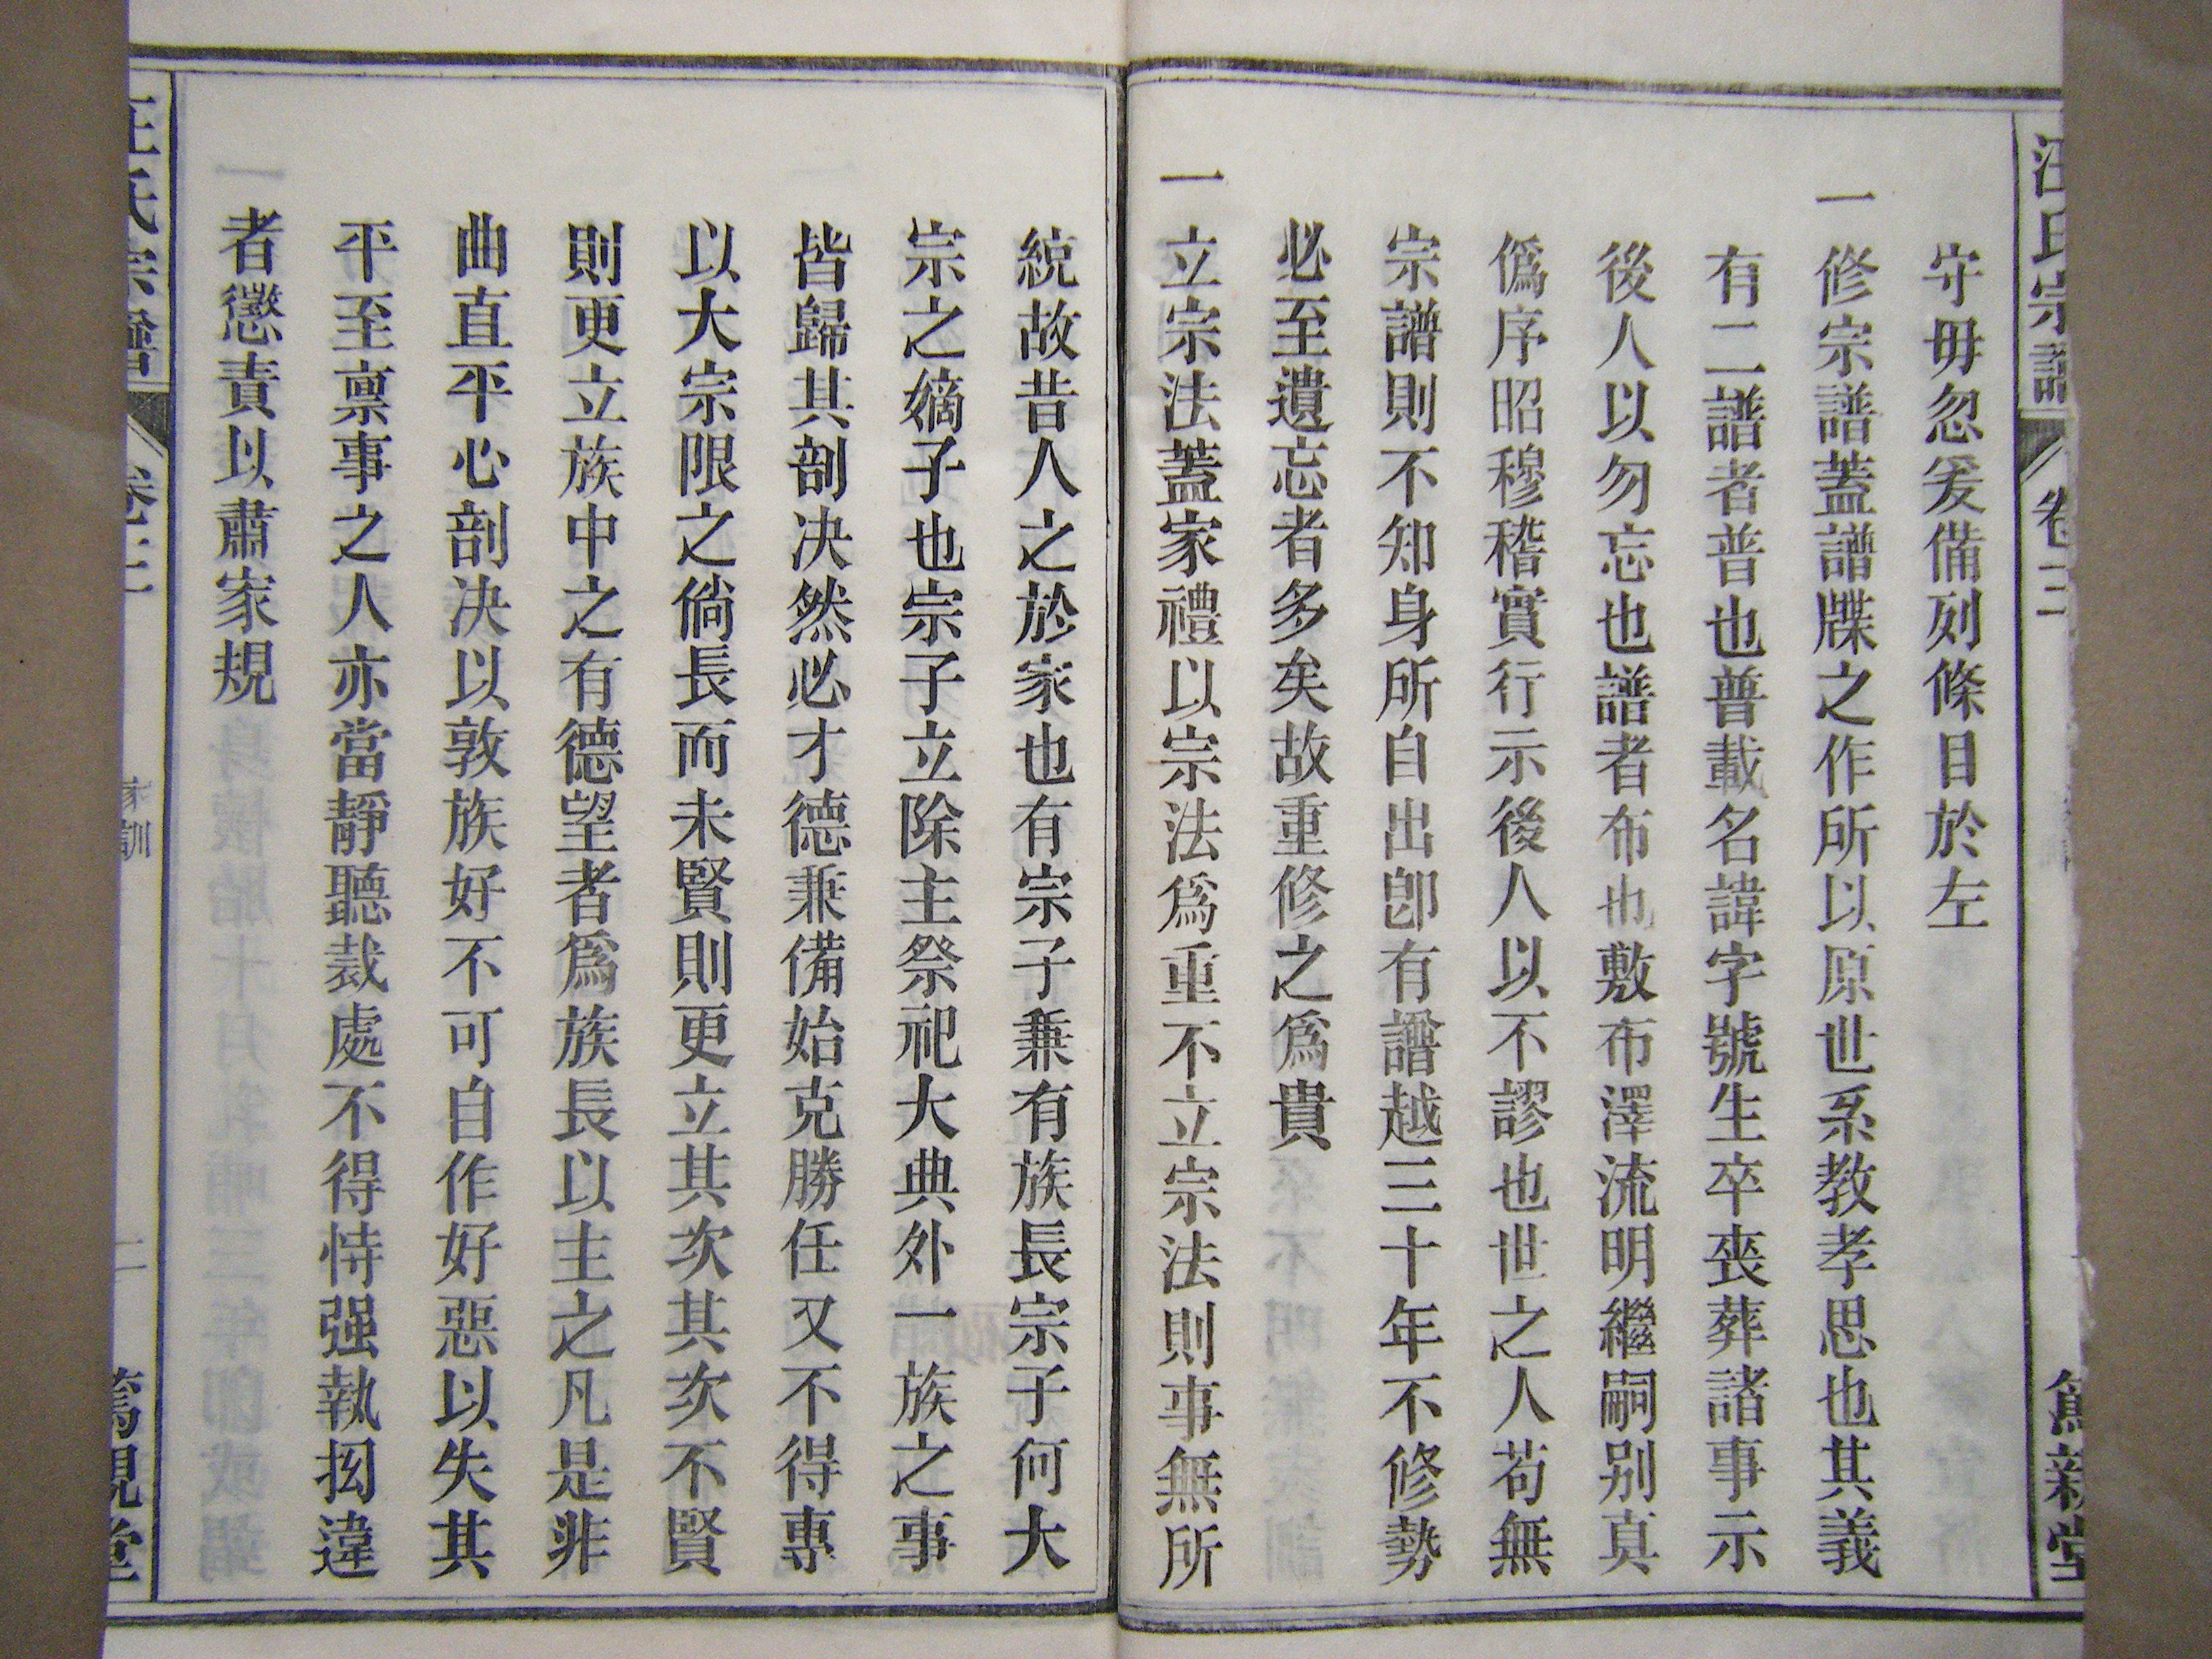 汪氏宗譜
卷三
守毋忽爰備列條目於左
一修宗譜蓋譜牒之作所以原世系教孝思也其義
有二譜者普也普載名諱字號生卒喪葬諸事示
後人以勿忘也譜者布也敷布澤流明繼嗣别真
僞序昭穆稽實行示後人以不謬也世之人苟無
宗譜則不知身所自出卽有譜越三十年不修勢
必至遺忘者多矣故重修之爲貴
一立宗法蓋家禮以宗法爲重不立宗法則事無所
統故昔人之於家也有宗子兼有族長宗子何大
宗之嫡子也宗子立除主祭祀大典外一族之事
皆歸其剖决然必才德兼備始克勝任又不得專
以大宗限之倘長而未賢則更立其次其次不賢
則更立族中之有德望者爲族長以主之凡是非
曲直平心剖决以敦族好不可自作好惡以失其
平至禀事之人亦當靜聽裁處不得恃强執拗違
者懲責以肅家規
汪氏宗譜
卷三
家訓
二